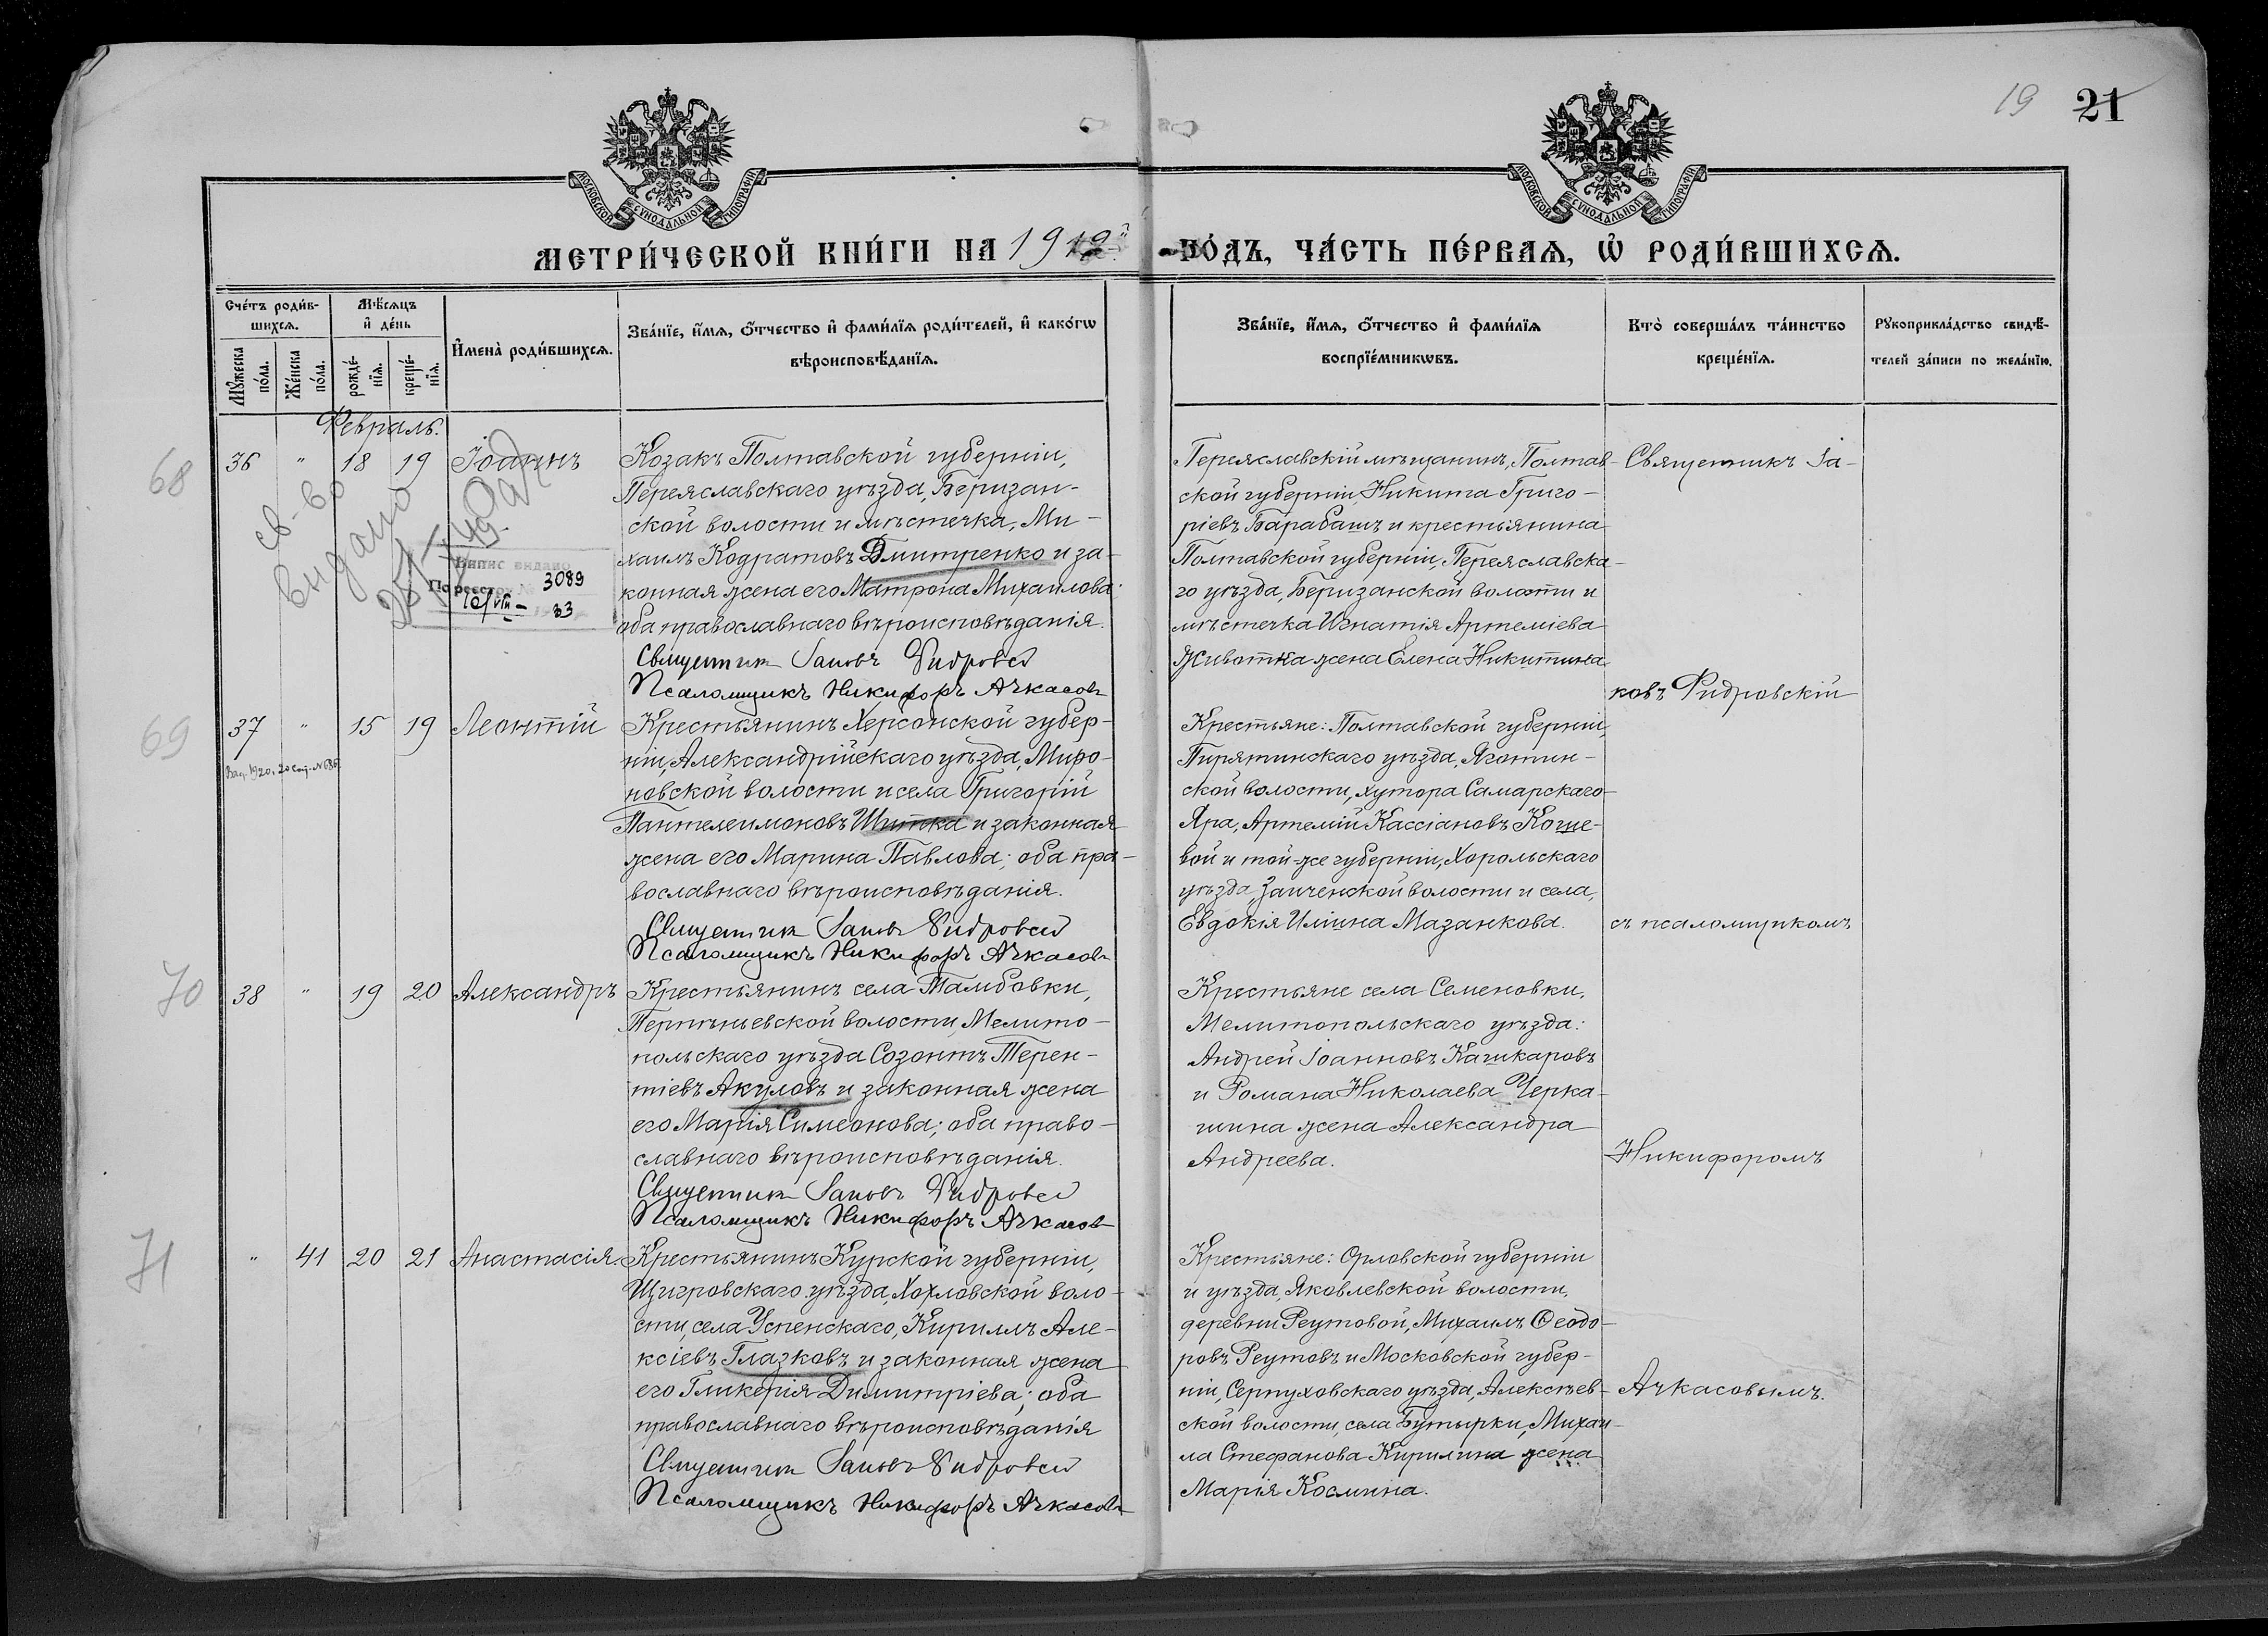 19 21
МОСКОВСКОЙ СѴНОДАЛЬНОЙ ТИПОГРАФІИ
МОСКОВСКОЙ СѴНОДАЛЬНОЙ ТИПОГРАФІИ
МЕТРИ́ЧЕСКОЙ КНИ́ГИ НА 1912й ГО́ДЪ, ЧА́СТЬ ПЕ́РВАѦ, Ѡ҆ РОДИ́ВШИХСѦ.
Сче́тъ роди́в-
шихсѧ.
Мꙋ́жеска по́ла.
Же́нска по́ла.
Мѣ́сѧцъ
и҆ де́нь
рожде́-
нїѧ.
креще́-
нїѧ.
И҆мена̀ роди́вшихсѧ.
Зва́нїе, и҆́мѧ, ѻ҆́тчество и҆ фами́лїѧ роди́телей, и҆ како́гѡ
вѣроисповѣ́данїѧ.
Зва́нїе, и҆́мѧ, ѻ҆́тчество и҆ фами́лїѧ
воспрїе́мникѡвъ.
Кто̀ соверша́лъ та́инство
креще́нїѧ.
Рꙋкоприкла́дство свидѣ́-
телей за́писи по жела́нїю.
Февраль.
68
36 " 18 19 Іоаннъ
св-во
выдано
Випис видано
По реестр. № 3089
10/VIII - 33
Козакъ Полтавской губерніи,
Переяславскаго уѣзда, Беризан-
ской волости и мѣстечка, Ми-
хаилъ Кодратовъ Дмитренко и за-
конная жена его Матрона Михаилова:
оба православнаго вѣроисповѣданія.
Священник Іаковъ Фидровскій
Псаломщикъ Никифоръ Ачкасовъ
Переяславскій мѣщанинъ, Полтав-
ской губерніи, Никита Григо-
ріевъ Барабашъ и крестьянина
Полтавской губерніи, Переяславска-
го уѣзда, Беризанской волости и
мѣстечка Игнатія Артеміева
Животка жена Елена Никитина
Священникъ Іа-
ковъ Фидровскій
69
37 " 15 19 Леонтій
Крестьянинъ Херсонской губер-
ніи, Александрійскаго уѣзда, Миро-
новской волости и села Григорій
Пантелеимоновъ Шитка и законная
жена его Марина Павлова; оба пра-
вославнаго вѣроисповѣданія.
Священник Іаковъ Фидровскій
Псаломщикъ Никифоръ Ачкасовъ
Крестьяне: Полтавской губерніи,
Пирятинскаго уѣзда, Яготин-
ской волости, хутора Самарскаго-
Яра, Артемій Кассіановъ Коше-
вой и той-же губерніи, Хорольскаго
уѣзда, Заиченской волости и села,
Евдокія Иліина Мазанкова.
съ псаломщикомъ
70
38 " 19 20 Александръ
Крестьянинъ села Тамбовки,
Терпѣньевской волости, Мелито-
польскаго уѣзда Созонтъ Терен-
тіевъ Акуловъ и законная жена
его Марія Симеонова; оба право-
славнаго вѣроисповѣданія.
Священник Іаковъ Фидровскій
Псаломщикъ Никифоръ Ачкасовъ
Крестьяне села Семеновки,
Мелитопольскаго уѣзда:
Андрей Іоанновъ Кашкаровъ
и Романа Николаева Черка-
шина жена Александра
Андреева.
Никифоромъ
71
" 41 20 21 Анастасія.
Крестьянинъ Курской губерніи,
Щигровскаго уѣзда, Хохловской воло-
сти, села Успенскаго, Кириллъ Але-
ксіевъ Глазковъ и законная жена
его Гликерія Димитріева; оба
православнаго вѣроисповѣданія
Священник Іаковъ Фидровскій
Псаломщикъ Никифоръ Ачкасовъ
Крестьяне: Орловской губерніи
и уѣзда, Яковлевской волости,
деревни Реутовой, Михаилъ Ѳеодо-
ровъ Реутовъ и Московской губер-
ніи, Серпуховскаго уѣзда, Алексѣев-
ской волости, села Бутырки, Михаи-
ла Стефанова Кирилина жена
Марія Космина.
Ачкасовымъ.